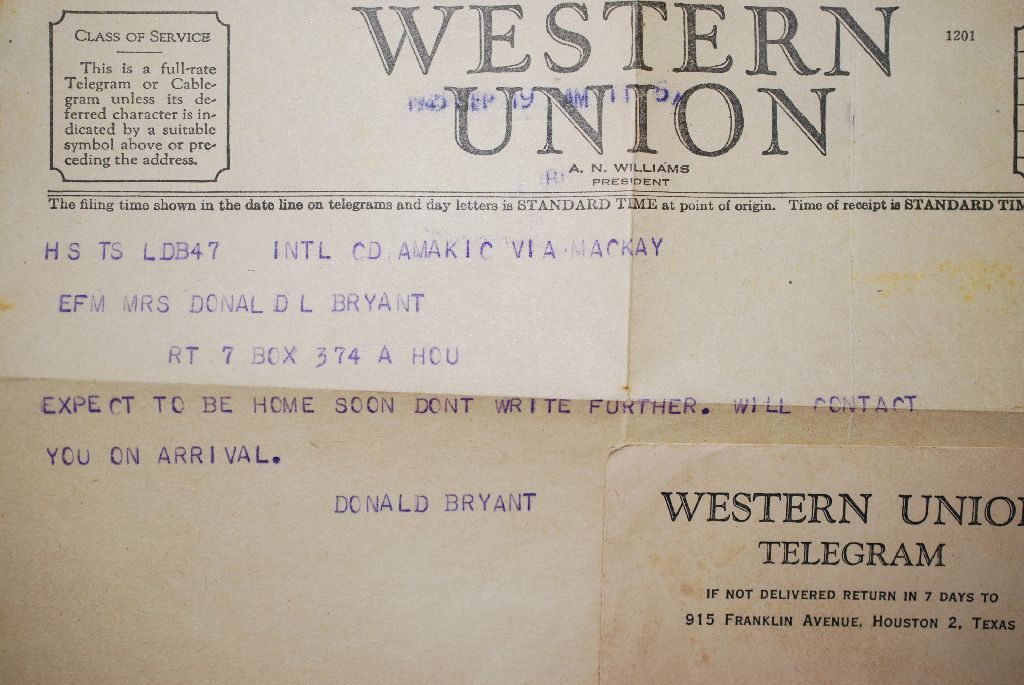 CLASS OF SERVICE
This is a full-rate
Telegram or Cable-
gram unless its de-
ferred character is in-
dicated by a suitable
symbol above or pre-
ceding the address.
WESTERN
UNION
1201
A. N. WILLIAMS
PRESIDENT
The filing time shown in the date line on telegrams and day letters is STANDARD TIME at point of origin. Time of receipt is STANDARD TIM
HS TS LDB47 INTL CD AMAKIC VIA MACKAY
EFM MRS DONALD L BRYANT
RT 7 BOX 374 A HOU
EXPECT TO BE HOME SOON DONT WRITE FURTHER. WILL CONTACT
YOU ON ARRIVAL.
DONALD BRYANT
WESTERN UNION
TELEGRAM
IF NOT DELIVERED RETURN IN 7 DAYS TO
915 FRANKLIN AVENUE, HOUSTON 2, TEXAS